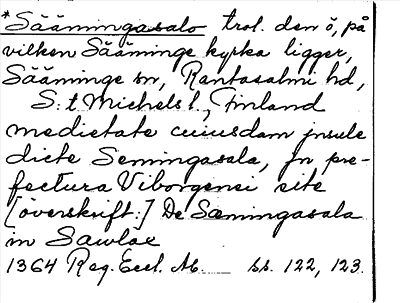 *Sääminingasalo trol. den ö, på
vilken Sääminge kyrka ligger,
Sääminge sn, Rantasalmi hd,
S:t Michels l., Finland
medietate cuiusdam jnsule
dicte Semingasala, Jn pre-
fectura Viborgensi site
[överskrift:] De Sæmingasala
in Sawlax
1364 Reg. Eccl. Ab. ss. 122, 123.